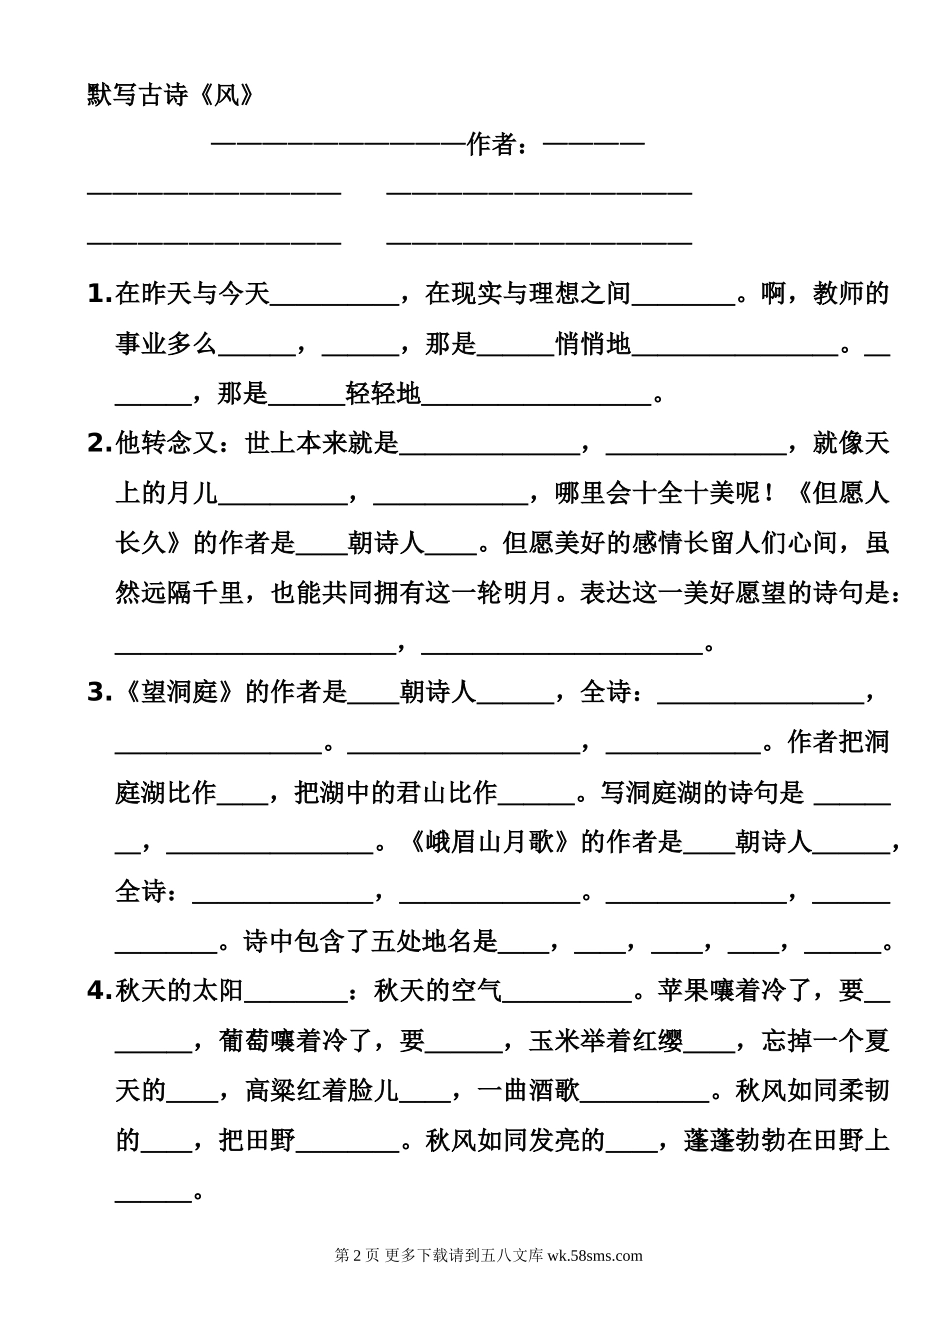 默写古诗《风》
——————————作者：————
—————————— ————————————
—————————— ————————————
1.在昨天与今天__________，在现实与理想之间________。啊，教师的
事业多么______，______，那是______悄悄地________________。__
______，那是______轻轻地__________________。
2.他转念又：世上本来就是______________，______________，就像天
上的月儿__________，____________，哪里会十全十美呢！《但愿人
长久》的作者是____朝诗人____。但愿美好的感情长留人们心间，虽
然远隔千里，也能共同拥有这一轮明月。表达这一美好愿望的诗句是：
______________________，______________________。
3.《望洞庭》的作者是____朝诗人______，全诗：________________，
________________。__________________，____________。作者把洞
庭湖比作____，把湖中的君山比作______。写洞庭湖的诗句是 ______
__，________________。《峨眉山月歌》的作者是____朝诗人______，
全诗：______________，______________。______________，______
________。诗中包含了五处地名是____，____，____，____，______。
4.秋天的太阳________：秋天的空气__________。苹果嚷着冷了，要__
______，葡萄嚷着冷了，要______，玉米举着红缨____，忘掉一个夏
天的____，高粱红着脸儿____，一曲酒歌__________。秋风如同柔韧
的____，把田野________。秋风如同发亮的____，蓬蓬勃勃在田野上
______。
第 2 页 更多下载请到五八文库 wk.58sms.com